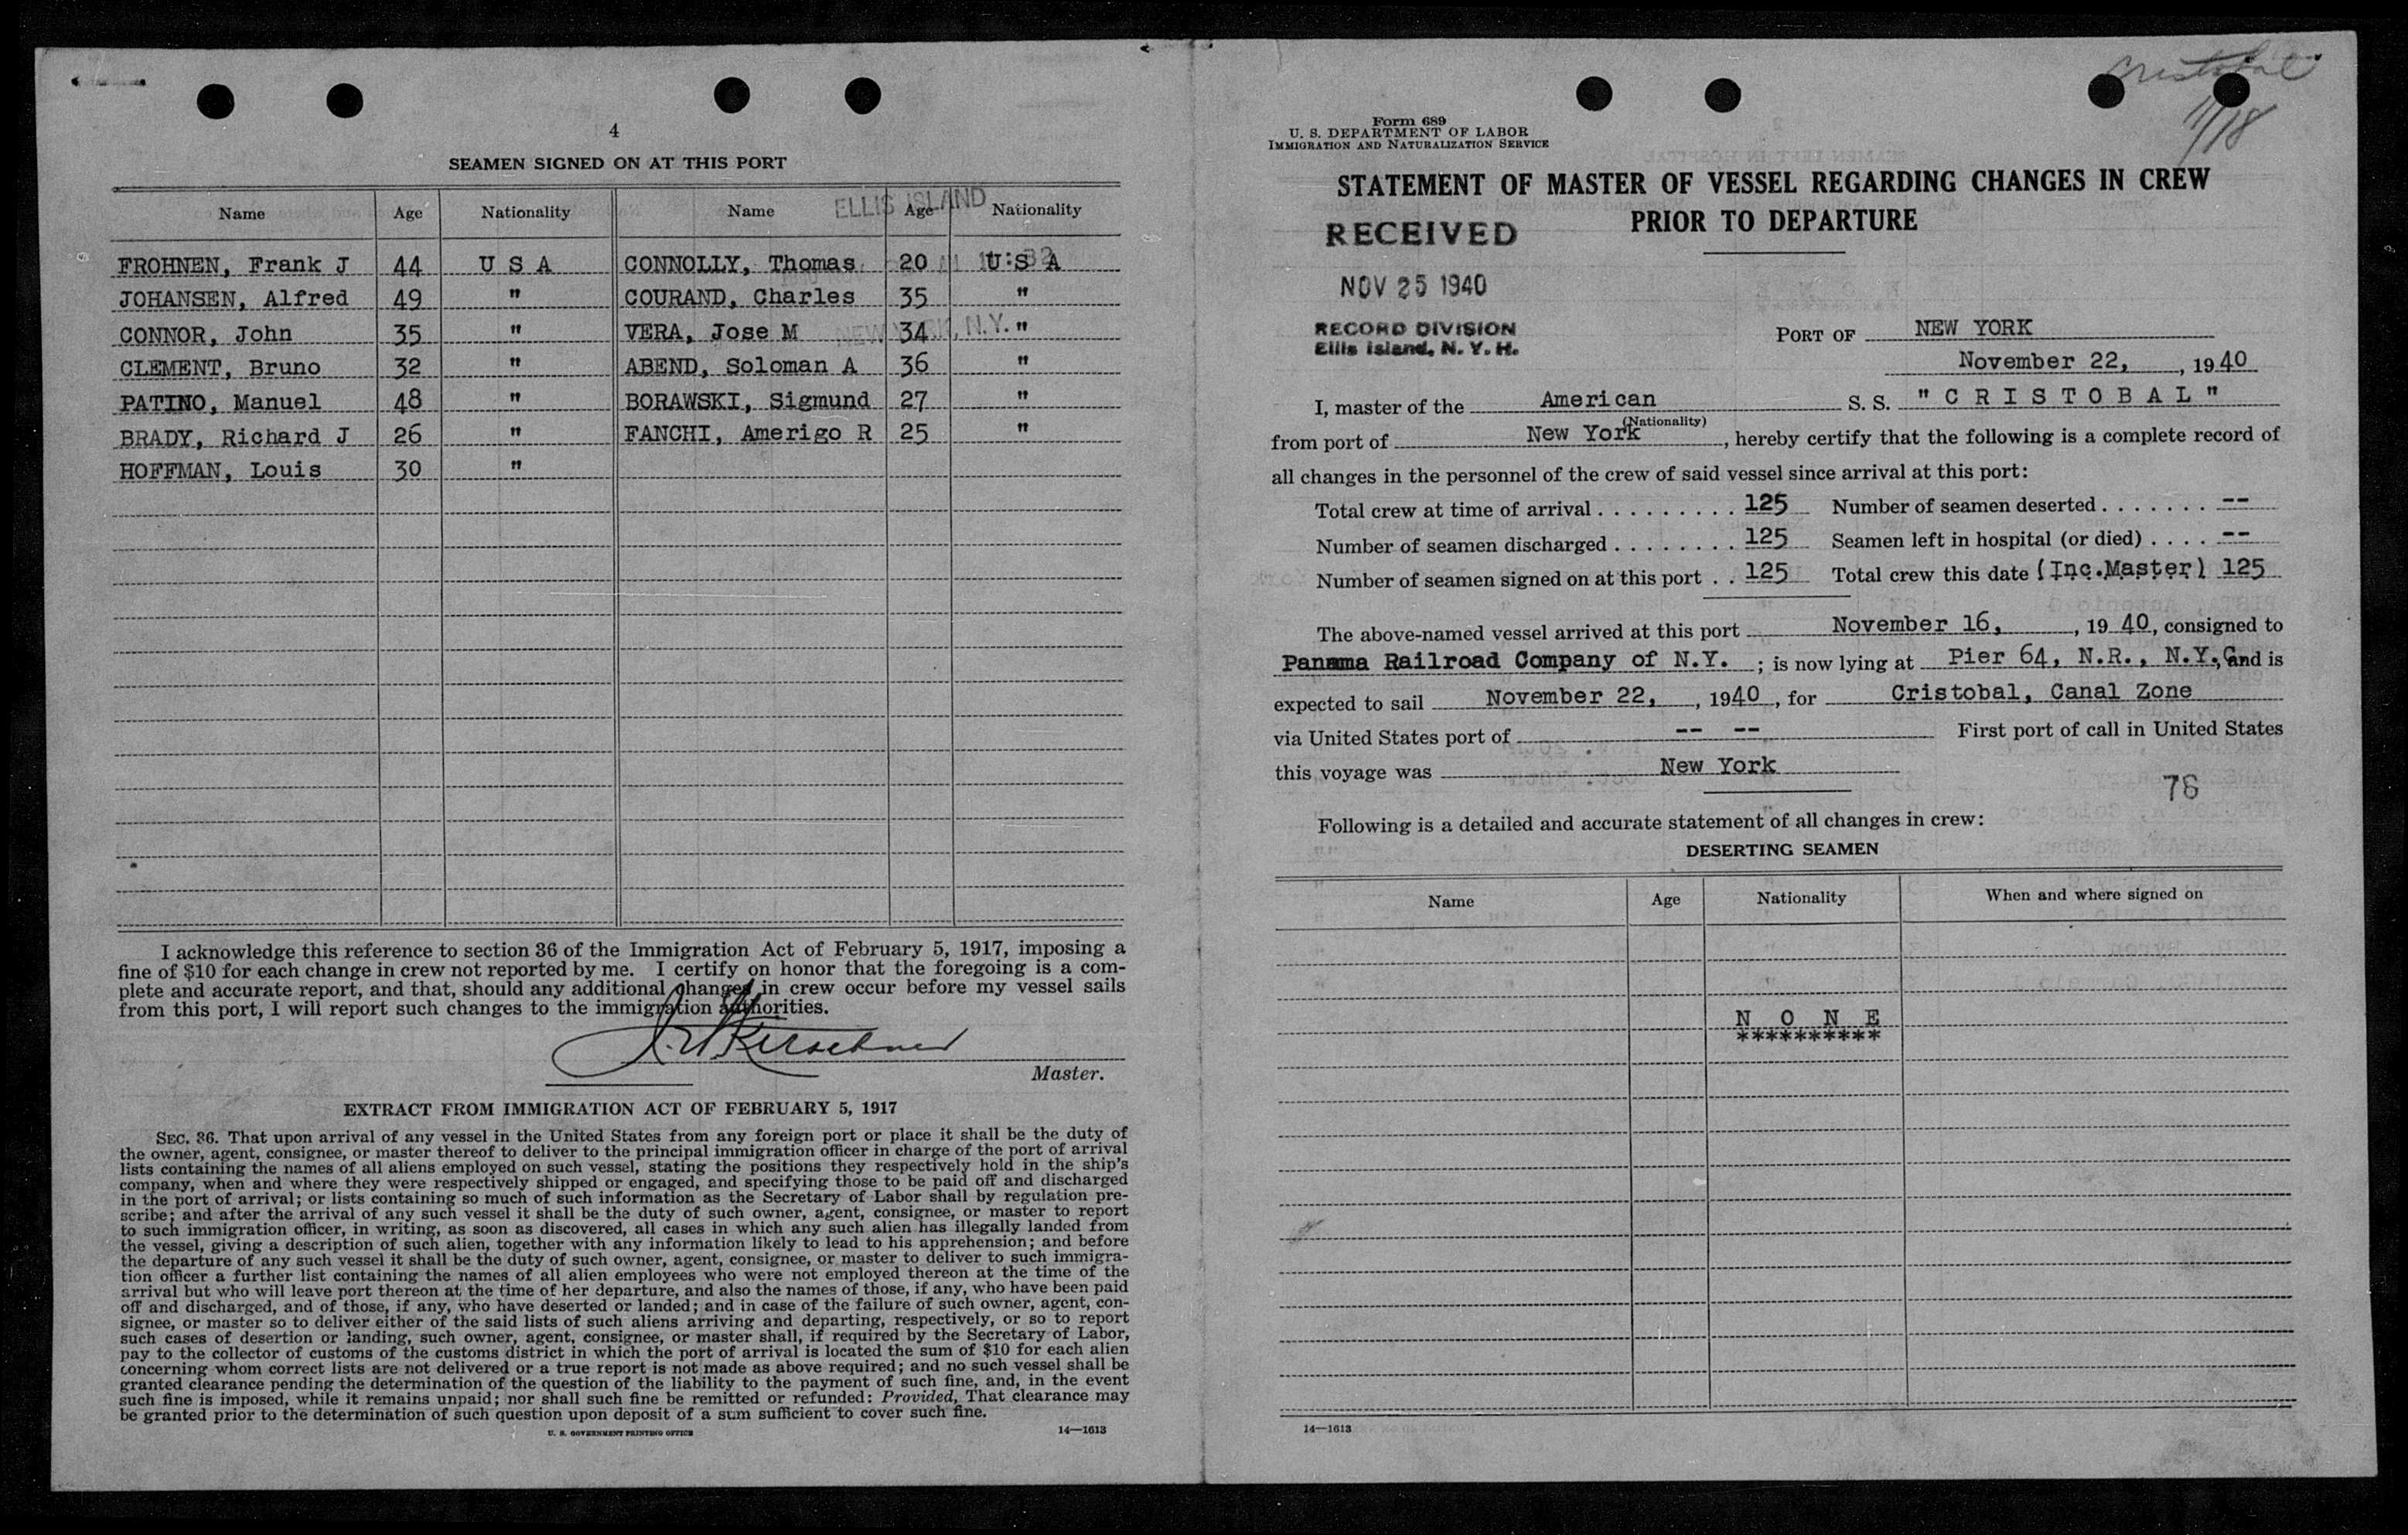 4
SEAMEN SIGNED ON AT THIS PORT
ELLIS ISLAND
Name Age Nationality Name Age Nationality
FROHNEN, Frank J 44 U S A CONNOLLY, Thomas 20 U S A
JOHANSEN, Alfred 49 " COURAND, Charles 35 "
CONNOR, John 35 " VERA, Jose M 34 "
NEW YORK, N.Y.
CLEMENT, Bruno 32 " ABEND, Soloman A 36 "
PATINO, Manuel 48 " BORAWSKI, Sigmund 27 "
BRADY, Richard J 26 " FANCHI, Amerigo R 25 "
HOFFMAN, Louis 30 "
I acknowledge this reference to section 36 of the Immigration Act of February 5, 1917, imposing a
fine of $10 for each change in crew not reported by me. I certify on honor that the foregoing is a com-
plete and accurate report, and that, should any additional changes in crew occur before my vessel sails
from this port, I will report such changes to the immigration authorities.
Master.
EXTRACT FROM IMMIGRATION ACT OF FEBRUARY 5, 1917
SEC. 36. That upon arrival of any vessel in the United States from any foreign port or place it shall be the duty of
the owner, agent, consignee, or master thereof to deliver to the principal immigration officer in charge of the port of arrival
lists containing the names of all aliens employed on such vessel, stating the positions they respectively hold in the ship's
company, when and where they were respectively shipped or engaged, and specifying those to be paid off and discharged
in the port of arrival; or lists containing so much of such information as the Secretary of Labor shall by regulation pre-
scribe; and after the arrival of any such vessel it shall be the duty of such owner, agent, consignee, or master to report
to such immigration officer, in writing, as soon as discovered, all cases in which any such alien has illegally landed from
the vessel, giving a description of such alien, together with any information likely to lead to his apprehension; and before
the departure of any such vessel it shall be the duty of such owner, agent, consignee, or master to deliver to such immigra-
tion officer a further list containing the names of all alien employees who were not employed thereon at the time of the
arrival but who will leave port thereon at the time of her departure, and also the names of those, if any, who have been paid
off and discharged, and of those, if any, who have deserted or landed; and in case of the failure of such owner, agent, con-
signee, or master so to deliver either of the said lists of such aliens arriving and departing, respectively, or so to report
such cases of desertion or landing, such owner, agent, consignee, or master shall, if required by the Secretary of Labor,
pay to the collector of customs of the customs district in which the port of arrival is located the sum of $10 for each alien
concerning whom correct lists are not delivered or a true report is not made as above required; and no such vessel shall be
granted clearance pending the determination of the question of the liability to the payment of such fine, and, in the event
such fine is imposed, while it remains unpaid; nor shall such fine be remitted or refunded: Provided, That clearance may
be granted prior to the determination of such question upon deposit of a sum sufficient to cover such fine.
U. S. GOVERNMENT PRINTING OFFICE 14—1613
Cristobal
11/18
Form 689
U. S. DEPARTMENT OF LABOR
IMMIGRATION AND NATURALIZATION SERVICE
STATEMENT OF MASTER OF VESSEL REGARDING CHANGES IN CREW
PRIOR TO DEPARTURE
RECEIVED
NOV 25 1940
RECORD DIVISION
Ellis Island, N. Y. H.
PORT OF NEW YORK
November 22, , 1940
I, master of the American S. S. " C R I S T O B A L "
(Nationality)
from port of New York, hereby certify that the following is a complete record of
all changes in the personnel of the crew of said vessel since arrival at this port:
Total crew at time of arrival . . . . . . . . . 125 Number of seamen deserted . . . . . . . --
Number of seamen discharged . . . . . . . . 125 Seamen left in hospital (or died) . . . . --
Number of seamen signed on at this port . . 125 Total crew this date (Inc.Master) 125
The above-named vessel arrived at this port November 16, , 19 40, consigned to
Panama Railroad Company of N.Y. ; is now lying at Pier 64, N.R., N.Y.C., and is
expected to sail November 22, , 1940, for Cristobal, Canal Zone
via United States port of -- -- First port of call in United States
this voyage was New York
76
Following is a detailed and accurate statement of all changes in crew:
DESERTING SEAMEN
Name Age Nationality When and where signed on
N O N E
**********
14—1613